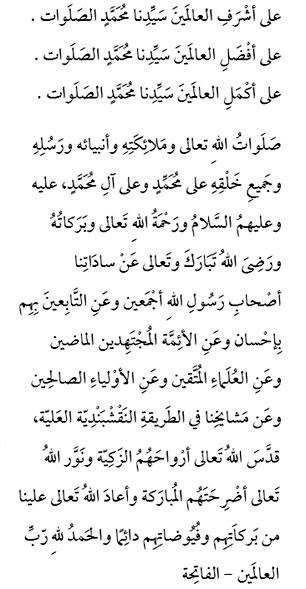 على أشْرَفِ العالَمينَ سَيِّدِنا مُحَمَّدٍ الصَلَوات .
على أفْضَلِ العالَمينَ سَيِّدِنا مُحَمَّدٍ الصَلَوات .
على أكْمَلِ العالَمينَ سَيِّدِنا مُحَمَّدٍ الصَلَوات .
صَلَواتُ اللهِ تعالى ومَلائِكَتِهِ وأنبيائه ورَسُلِهِ
وجَميعِ خَلْقِهِ على مُحَمَّدٍ وعلى آلِ مُحَمَّدٍ، عليه
وعليهِمُ السَّلامُ ورَحْمَةُ اللهِ تَعالى وبَرَكاتُهُ
ورَضِىَ اللهُ تَبَارَكَ وتَعالى عَنْ ساداتِنا
أصْحابِ رَسُولِ اللهِ أجْمَعين وعَنِ التَّابِعينَ بِهِم
بِإحْسان وعَنِ الأئِمَّةِ المُجْتَهِدين الماضين
وعَنِ العُلَماءِ المُتَّقين وعَنِ الأوْلياءِ الصالحِين
وعَن مَشايخِنا في الطَريقةِ النَقْشْبَنْديّة العَليّة،
قدَّسَ اللهُ تَعالى أرْواحَهُمُ الزَكِيّة ونَوَّر اللهُ
تَعالى أضْرِحَتَهُم المُبارَكة وأعادَ اللهُ تَعالى علينا
من بَركاتِهِم وفُيُوضاتِهِم دائِمًا والحَمدُ للهِ رَبِّ
العالَمين – الفاتِحة